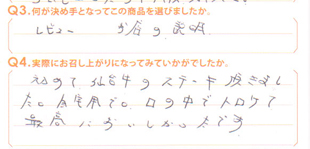 Q3.何が決め手となってこの商品を選びましたか。
レビュー お店の説明
Q4.実際にお召し上がりになってみていかがでしたか。
初めて 仙台牛のステーキ頂きまし
たが 自宅用で。口の中でトロけて
最高においしかったです